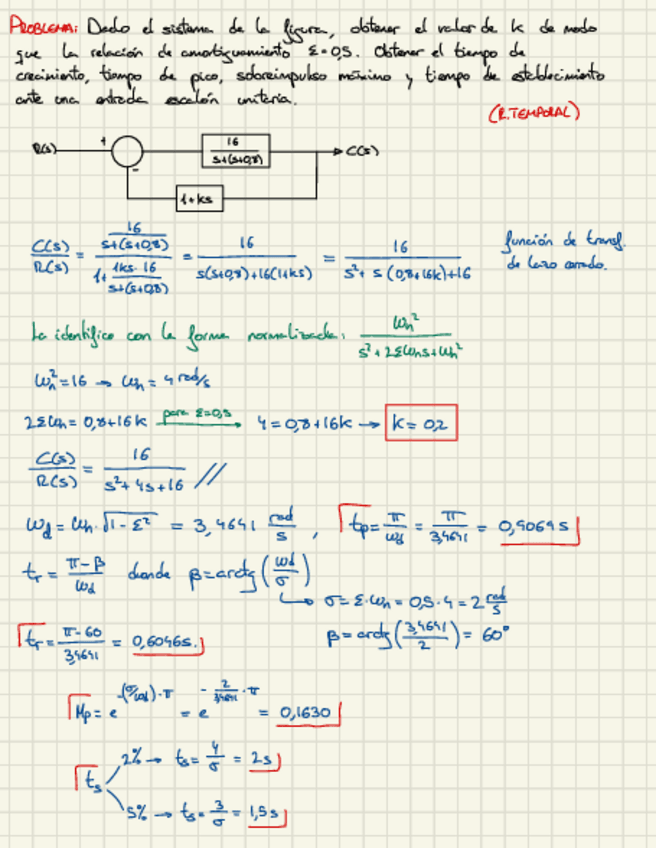 PROBLEMA: Dado el sistema de la figura, obtener el valor de k de modo
que la relación de amortiguamiento ξ=0,5. Obtener el tiempo de
crecimiento, tiempo de pico, sobreimpulso máximo y tiempo de establecimiento
ante una entrada escalón unitaria.
(R.TEMPORAL)
R(s) + - 16/(s+(s+0,8)) C(s)
1+ks
C(s)/R(s) = (16/(s+(s+0,8)))/(1+(1ks·16)/(s+(s+0,8))) = 16/(s(s+0,8)+16(1+ks)) = 16/(s²+s(0,8+16k)+16) función de transf.
de lazo cerrado.
La identifico con la forma normalizada: ωn²/(s²+2ξωns+ωn²)
ωn²=16 → ωn = 4 rad/s
2ξωn = 0,8+16k para ξ=0,5 → 4=0,8+16k → k=0,2
C(s)/R(s) = 16/(s²+4s+16) //
ωd = ωn·√(1-ξ²) = 3,4641 rad/s , tp = π/ωd = π/3,4641 = 0,9069s
tr = (π-β)/ωd donde β=arctg(ωd/σ)
→ σ=ξ·ωn = 0,5·4 = 2 rad/s
tr = (π-60)/3,4641 = 0,6046s. β=arctg(3,4641/2) = 60°
Mp = e^(-(σ/ωd)·π) = e^(-(2/3,4641)·π) = 0,1630
ts 2% → ts = 4/σ = 2s
5% → ts = 3/σ = 1,5s